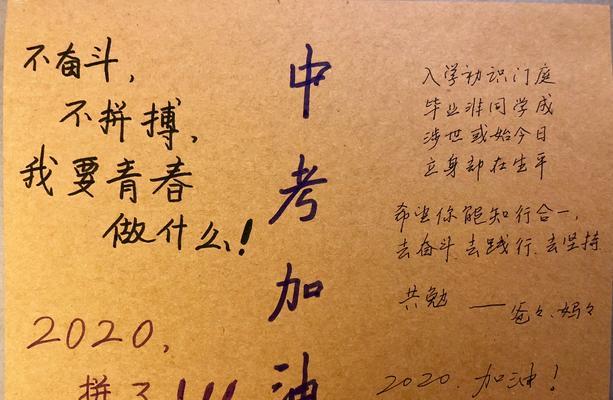 不奋斗,
不拼搏,
我要青春
做什么!
2020,
拼了!!!
中考加油
入学初识门庭
毕业非同学成
涉世或始今日
立身却在生平
希望你能知行合一,
去奋斗、去践行、去坚持
共勉
——爸々、妈々
2020.加油!